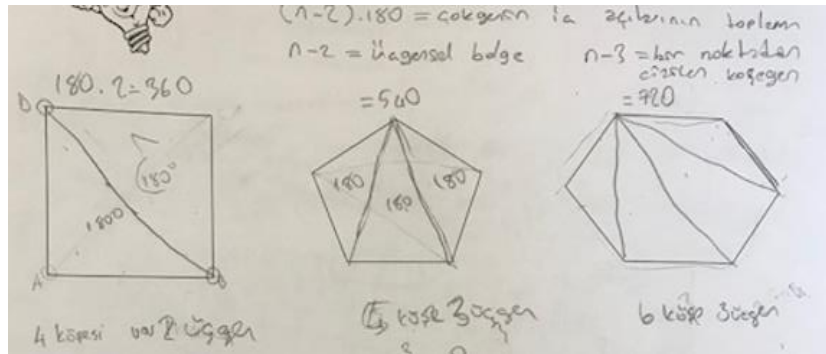 (n-2).180 = çokgenin iç açılarının toplamı
n-2 = üçgensel bölge
n-3 = bir noktadan
çizilen köşegen
180.2=360
=540
=720
D
180°
1800
A
B
180
180
180
4 köşesi var 2 üçgen
5 köşe 3 üçgen
6 köşe 3üçgen